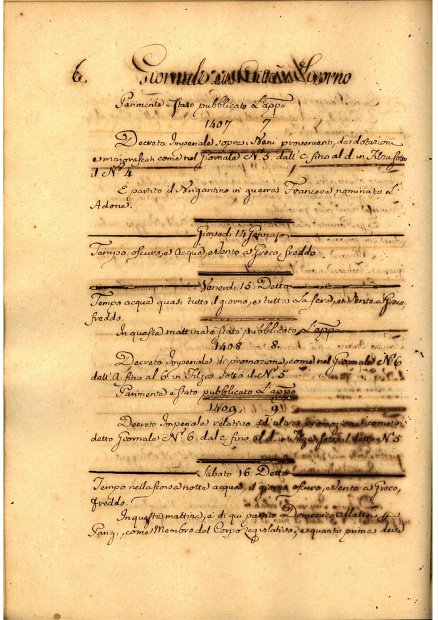 6. Giornale Città Livorno
Parimente è stato pubblicato L'appo
1407 7
Decreto Imperiale sopra i Beni provenienti, da dotazioni
e maggiorascati come nel Giornale N.º 5. dall' C. fino al d. in Filza sotto
il Nº 4
È partito il Brigantino in guerra Francese nominato L'
Adone.
Giovedì 14 Gennajo
Tempo oscuro, e Acqua, e Vento a Greco freddo.
Venerdì 15. Detto
Tempo acqua quasi tutto il giorno, e tutta La sera, e Vento a Greco
freddo.
In questa mattina è stato pubblicato L'appo
1408 8
Decreto Imperiale di promozione, come nel Giornale Nº 6
dell' A fino al b in Filza sotto il Nº 5
Parimente è stato pubblicato L'appo
1409 9
Decreto Imperiale relativo ad altre promozione, come in
detto Giornale Nº 6. dal c. fino al d. in detto Nº 5
Sabato 16. Detto
Tempo nella scorsa notte acqua, il giorno oscuro, e Vento a Greco,
freddo.
In questa mattina, è di qui partito Domenico Matteo
come Membro del Corpo Legislativo, e quanto prima deve